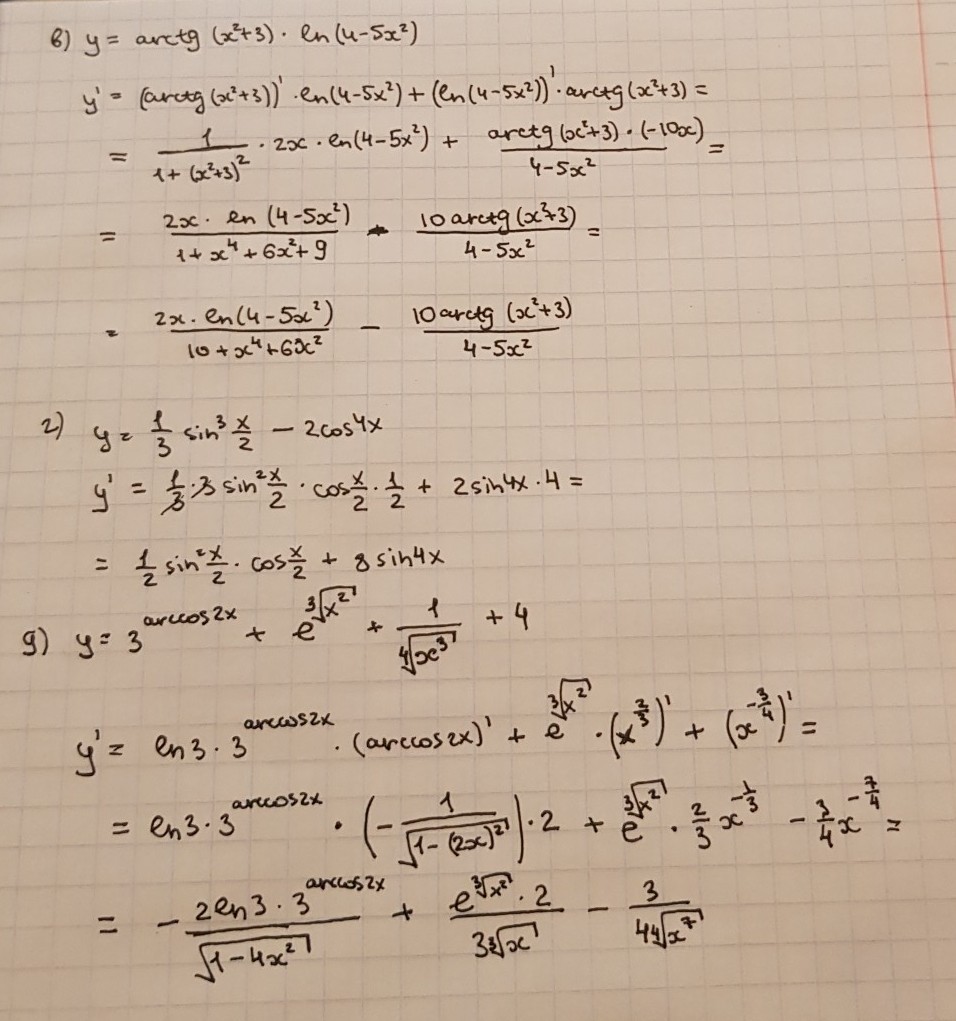 в) y = arctg (x²+3) · ln(4-5x²)
y' = (arctg(x²+3))' · ln(4-5x²) + (ln(4-5x²))' · arctg(x²+3) =
= 1/(1+(x²+3)²) · 2x · ln(4-5x²) + (arctg(x²+3) · (-10x))/(4-5x²) =
= (2x · ln(4-5x²))/(1+x⁴+6x²+9) - (10 arctg(x²+3))/(4-5x²) =
= (2x · ln(4-5x²))/(10+x⁴+6x²) - (10 arctg (x²+3))/(4-5x²)
г) y = 1/3 sin³ x/2 - 2cos4x
y' = 1/3 · 3 sin² x/2 · cos x/2 · 1/2 + 2sin4x · 4 =
= 1/2 sin² x/2 · cos x/2 + 8 sin4x
g) y = 3^(arccos2x) + e^(∛x²) + 1/(∜x³) + 4
y' = ln3 · 3^(arccos2x) · (arccos2x)' + e^(∛x²) · (x^(2/3))' + (x^(-3/4))' =
= ln3 · 3^(arccos2x) · (-1/√(1-(2x)²)) · 2 + e^(∛x²) · 2/3 x^(-1/3) - 3/4 x^(-7/4) =
= - (2ln3 · 3^(arccos2x))/√(1-4x²) + (e^(∛x²) · 2)/(3∛x) - 3/(4∜x⁷)